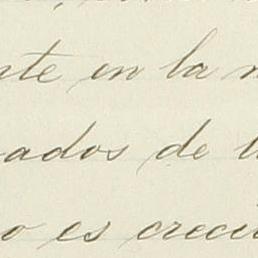 nte en la
ados de
o es crecu